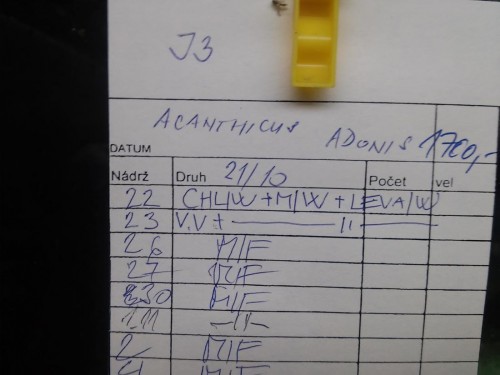 J3
ACANTHICUS ADONIS 1700,-
DATUM 21/10
Nádrž Druh Počet vel
22 CHL/W + M/W + LEVA/W
23 V.V + —— 11 ——
26 M/F
27 M/F
30 M/F
111 -11-
2 M/F
M/F